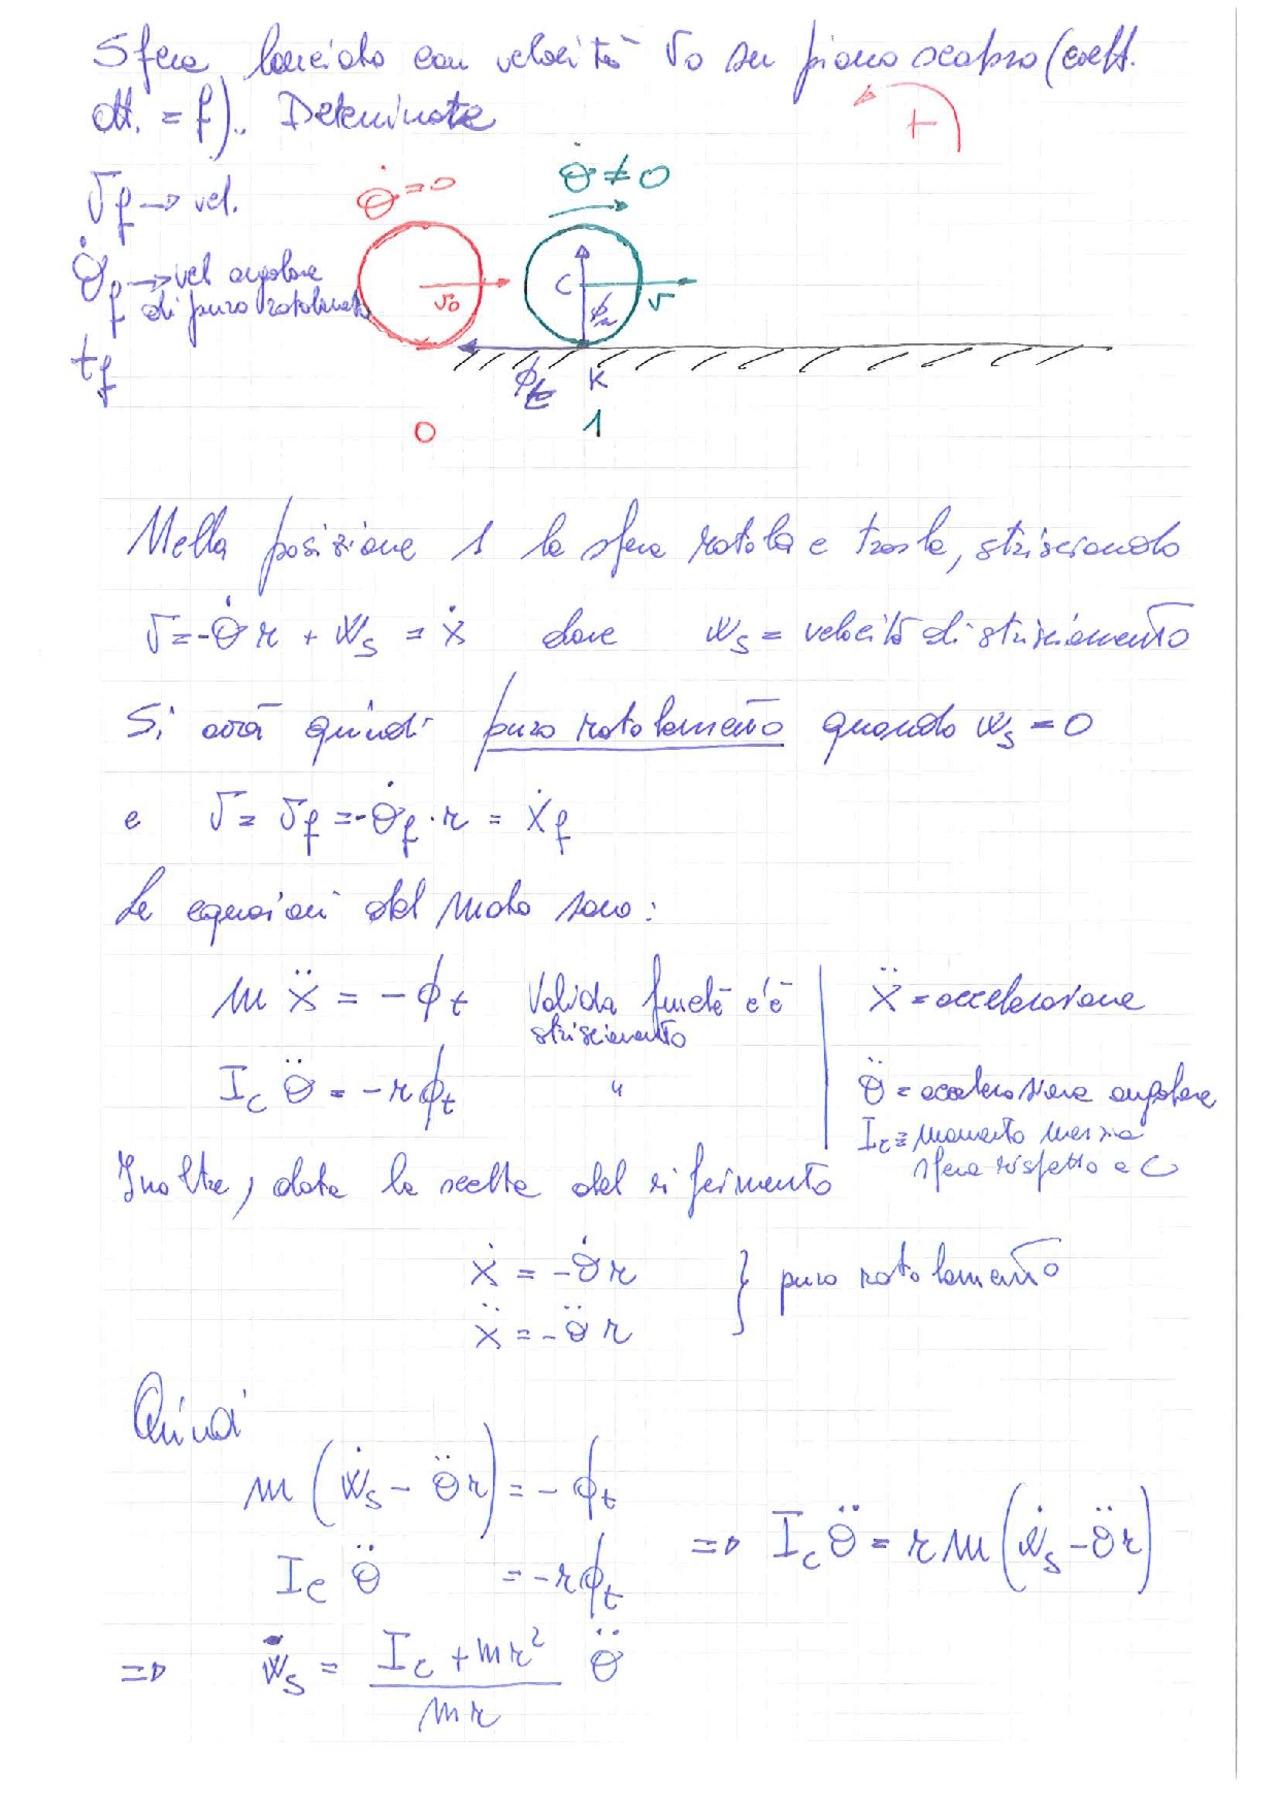 Sfera lanciata con velocità v₀ su piano scabro (coeff.
att. = f). Determinate
v_f → vel.
θ̇_f → vel angolare
di puro rotolamento
t_f
+
θ̇ = 0
θ̇ ≠ 0
v₀
C
v
ϕ_n
ϕ_t
K
0
1
Nella posizione 1 la sfera rotola e trasla, strisciando
v = -θ̇ r + w_s = ẋ dove w_s = velocità di strisciamento
Si avrà quindi puro rotolamento quando w_s = 0
e v = v_f = -θ̇_f · r = ẋ_f
Le equazioni del moto sono:
m ẍ = - ϕ_t Valida finché c'è
strisciamento
ẍ = accelerazione
I_c θ̈ = - r ϕ_t "
θ̈ = accelerazione angolare
I_c = momento inerzia
sfera rispetto a C
Inoltre, data la scelta del riferimento
ẋ = -θ̇ r
ẍ = -θ̈ r
} puro rotolamento
Quindi
m (ẇ_s - θ̈ r) = - ϕ_t
I_c θ̈ = - r ϕ_t
⇒ I_c θ̈ = r m (ẇ_s - θ̈ r)
⇒ ẇ_s = (I_c + m r²) / (m r) θ̈